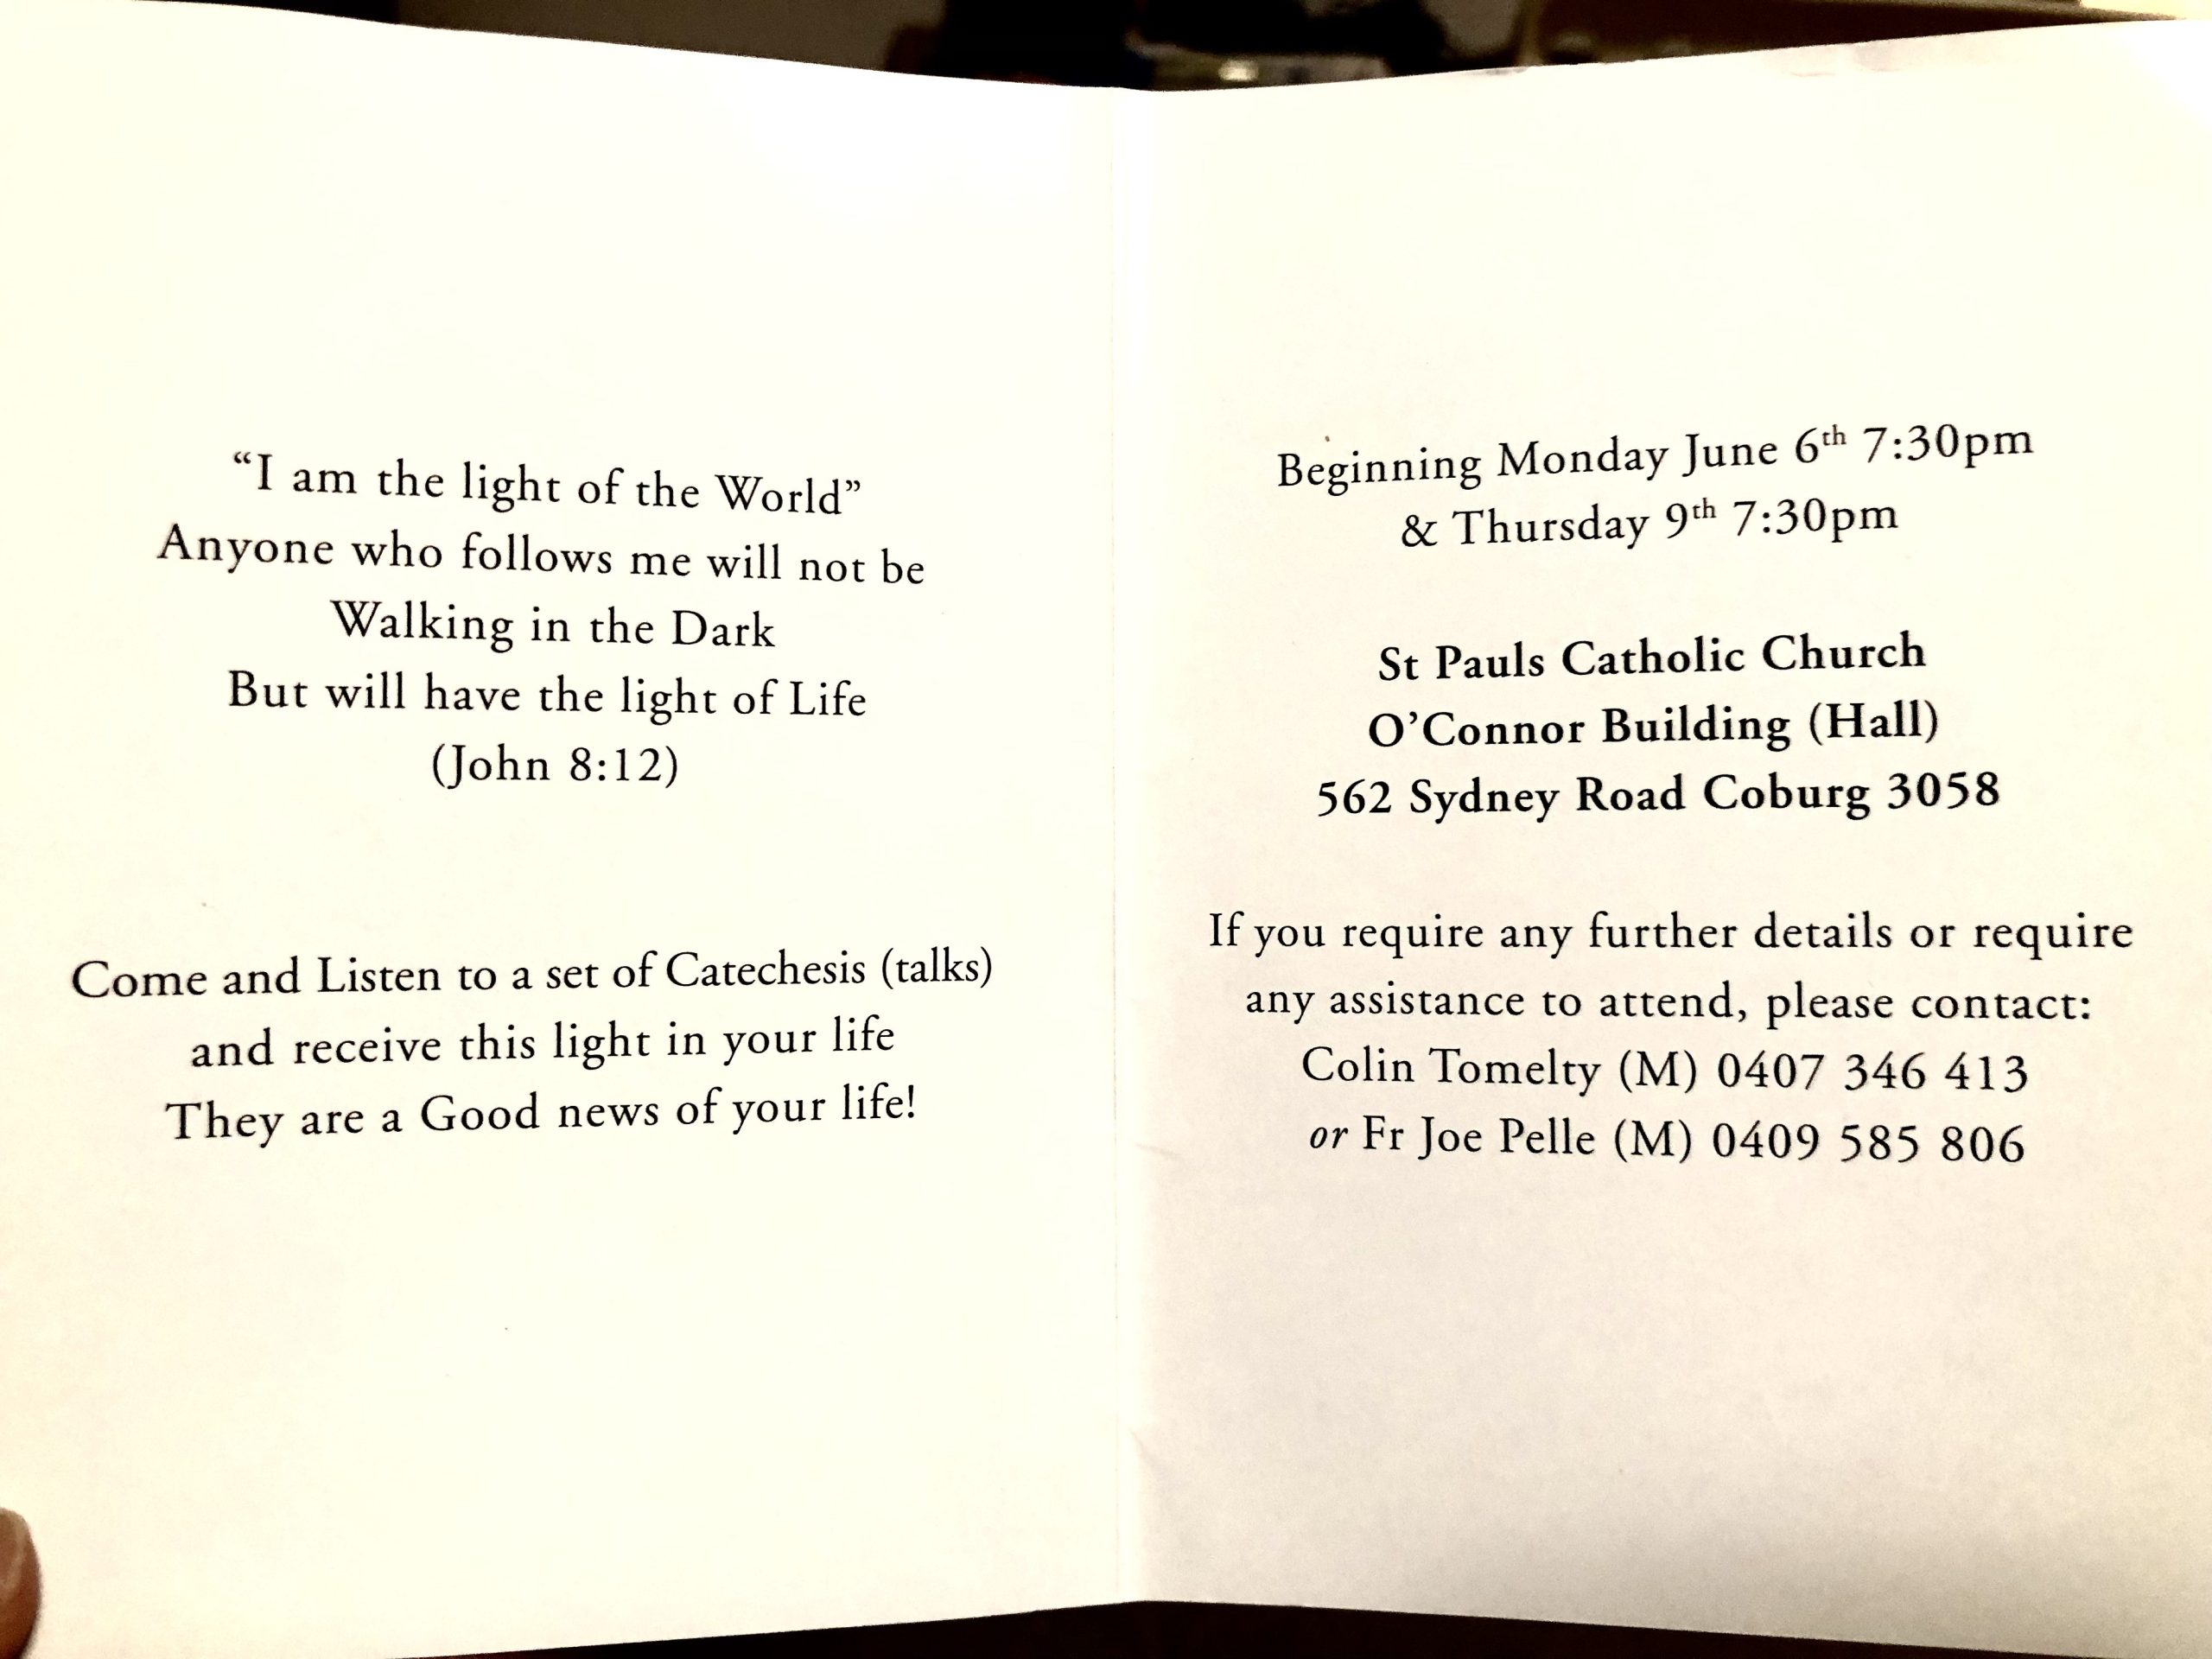 “I am the light of the World”
Anyone who follows me will not be
Walking in the Dark
But will have the light of Life
(John 8:12)
Come and Listen to a set of Catechesis (talks)
and receive this light in your life
They are a Good news of your life!
Beginning Monday June 6th 7:30pm
& Thursday 9th 7:30pm
St Pauls Catholic Church
O’Connor Building (Hall)
562 Sydney Road Coburg 3058
If you require any further details or require
any assistance to attend, please contact:
Colin Tomelty (M) 0407 346 413
or Fr Joe Pelle (M) 0409 585 806